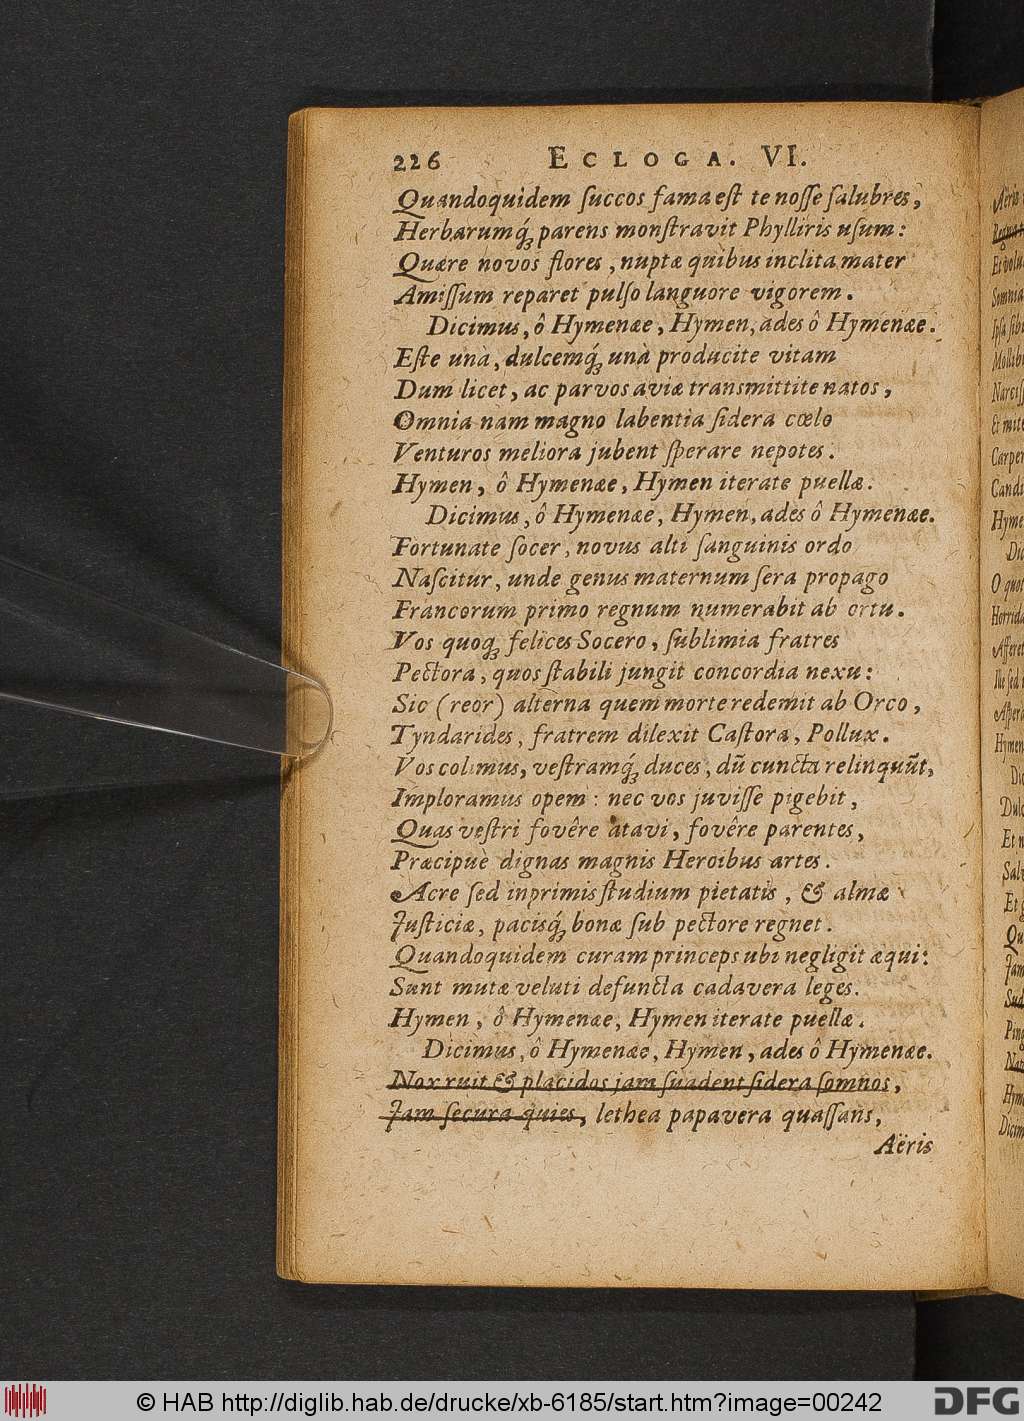 226 ECLOGA. VI.
Quandoquidem ſuccos fama eſt te noſſe ſalubres,
Herbarumq́; parens monſtravit Phylliris uſum:
Quære novos flores, nuptæ quibus inclita mater
Amiſſum reparet pulſo languore vigorem.
Dicimus, ô Hymenæe, Hymen, ades ô Hymenæe.
Eſte unà, dulcemq́; unà producite vitam
Dum licet, ac parvos aviæ transmittite natos,
Omnia nam magno labentia ſidera cœlo
Venturos meliora jubent ſperare nepotes.
Hymen, ô Hymenæe, Hymen iterate puellæ.
Dicimus, ô Hymenæe, Hymen, ades ô Hymenæe.
Fortunate ſocer, novus alti ſanguinis ordo
Naſcitur, unde genus maternum ſera propago
Francorum primo regnum numerabit ab ortu.
Vos quoq; felices Socero, ſublimia fratres
Pectora, quos ſtabili jungit concordia nexu:
Sic (reor) alterna quem morte redemit ab Orco,
Tyndarides, fratrem dilexit Caſtora, Pollux.
Vos colimus, veſtramq́; duces, dū cuncta relinquūt,
Imploramus opem: nec vos juviſſe pigebit,
Quas veſtri fovêre atavi, fovêre parentes,
Præcipuè dignas magnis Heroibus artes.
Acre ſed inprimis ſtudium pietatis, & almæ
Juſticiæ, pacisq́; bonæ ſub pectore regnet.
Quandoquidem curam princeps ubi negligit æqui:
Sunt mutæ veluti defuncta cadavera leges.
Hymen, ô Hymenæe, Hymen iterate puellæ.
Dicimus, ô Hymenæe, Hymen, ades ô Hymenæe.
Nox ruit & placidos jam ſuadent ſidera ſomnos,
Jam ſecura quies, lethea papavera quaſſans,
Aëris
© HAB http://diglib.hab.de/drucke/xb-6185/start.htm?image=00242
DFG